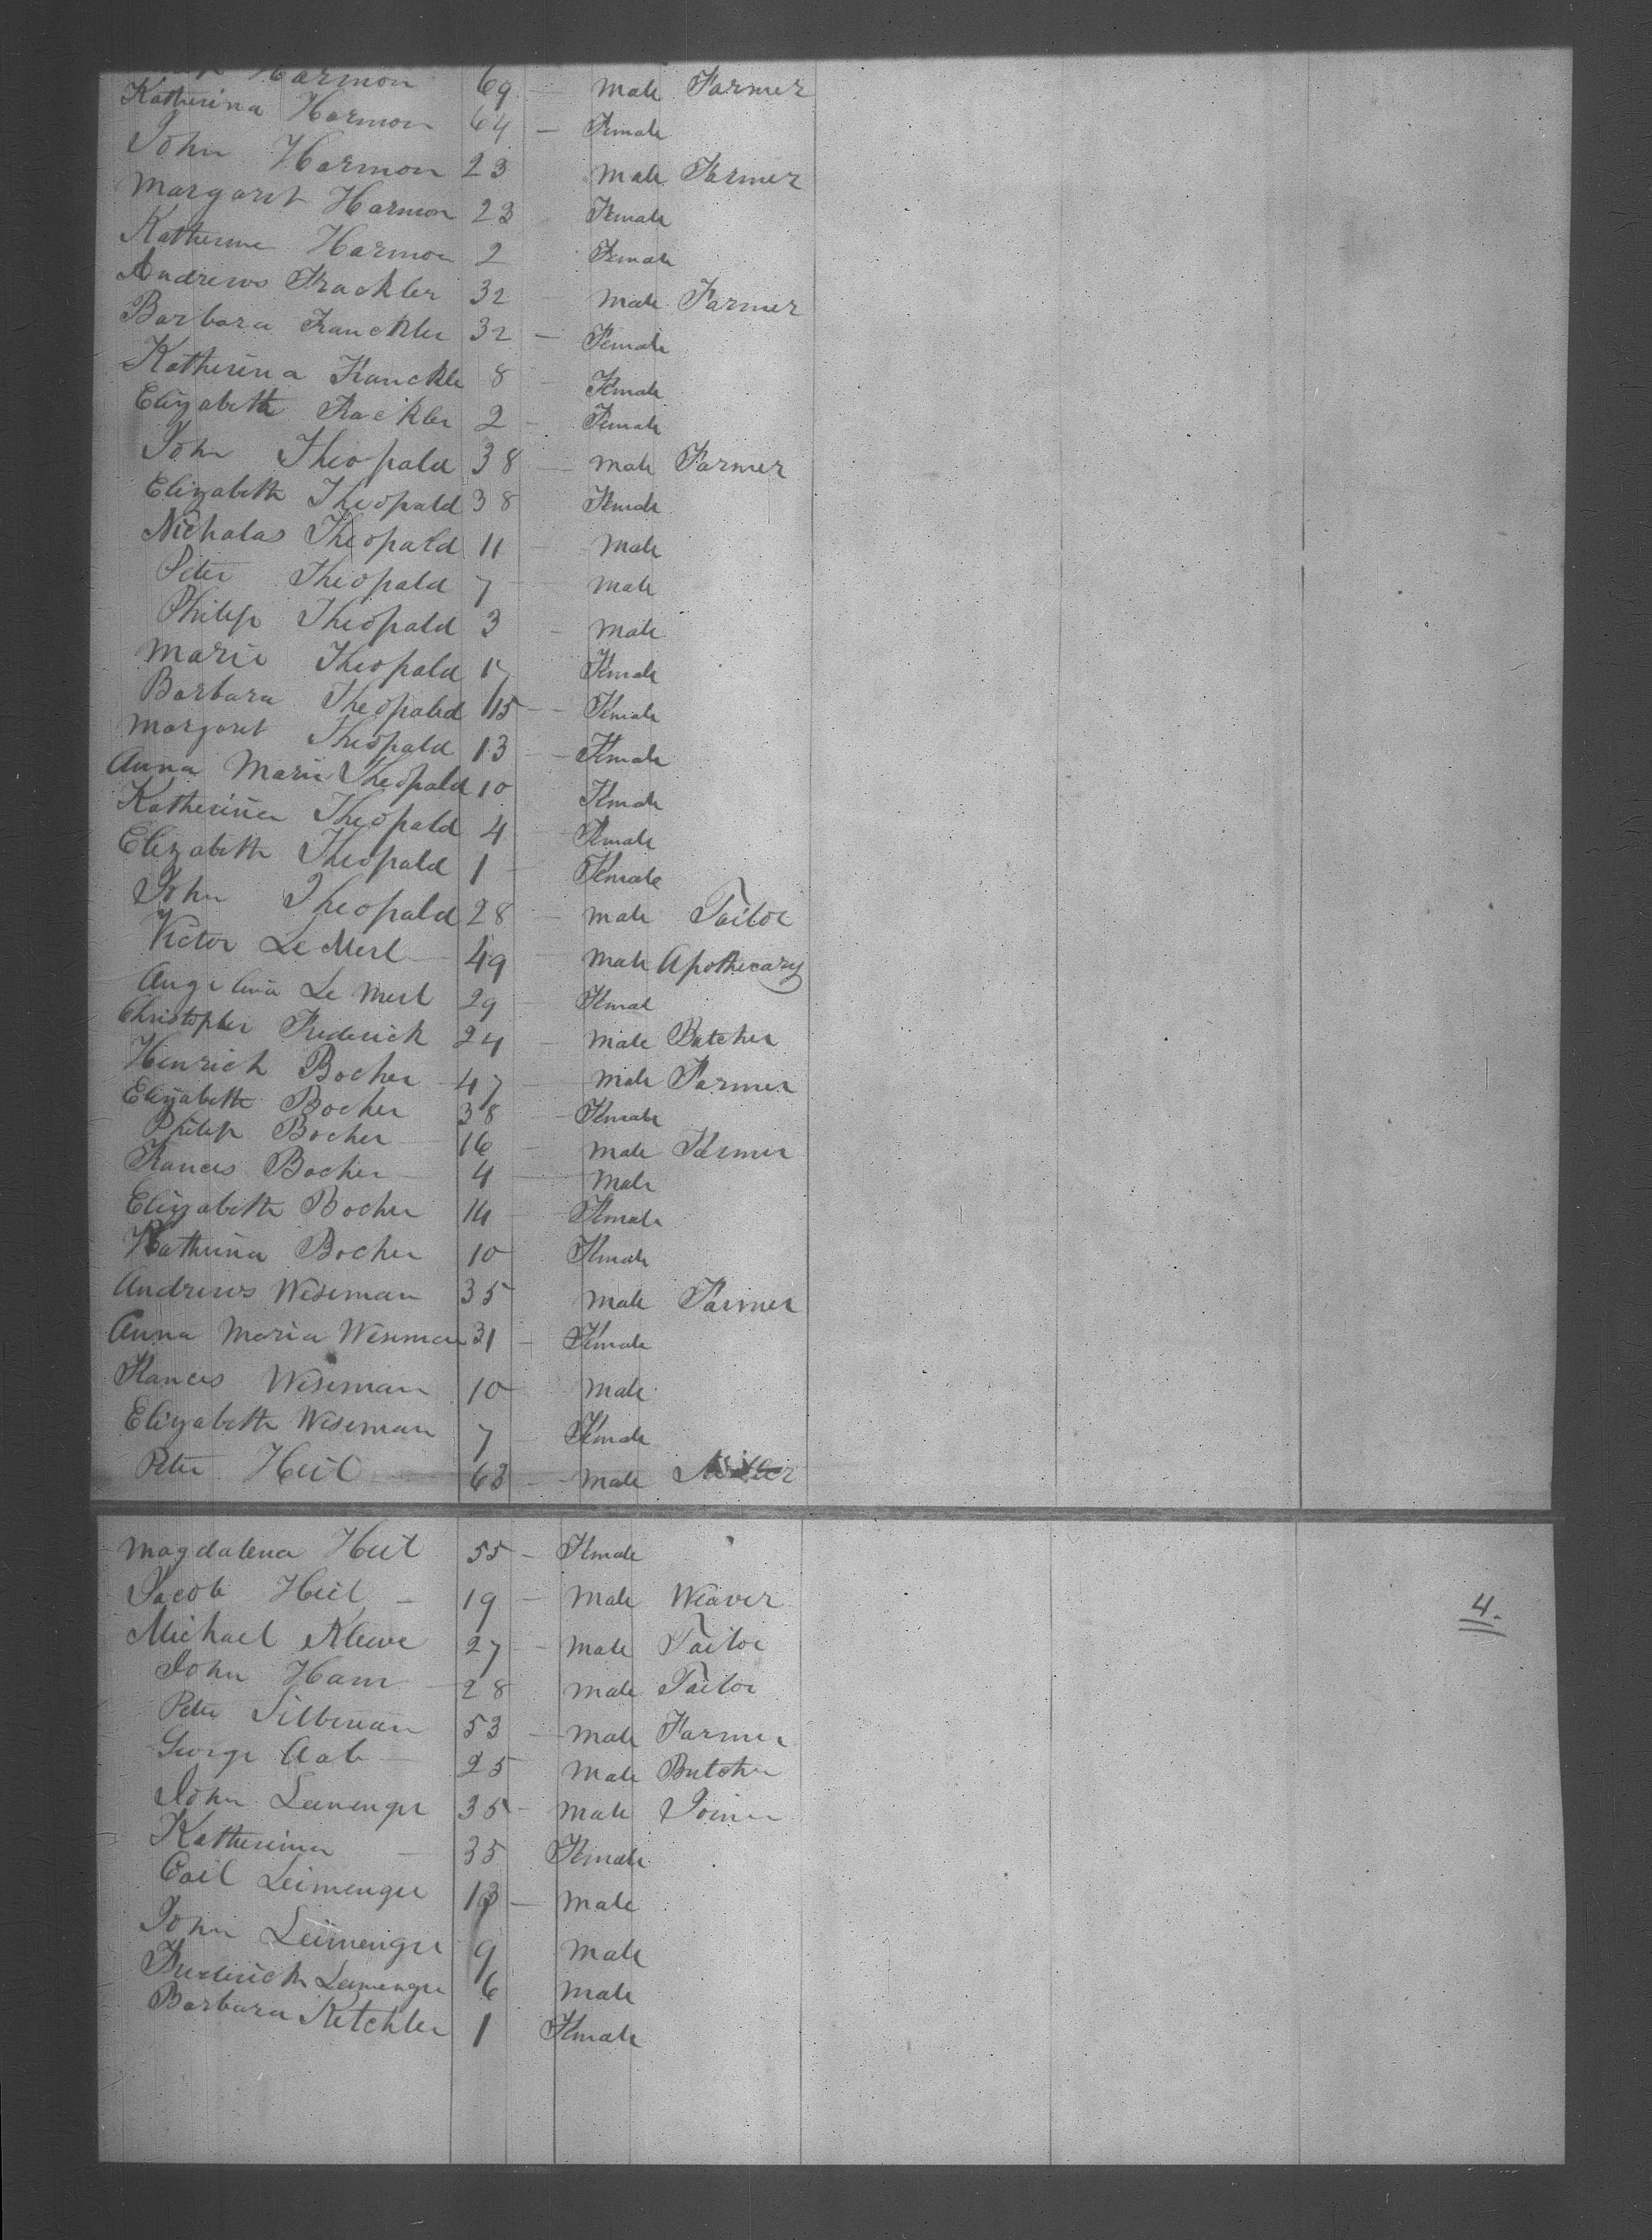 Harmon 69 — Male Farmer
Katherina Harmon 64 — Female
John Harmon 23 Male Farmer
Margaret Harmon 23 — Female
Katherine Harmon 2 Female
Andrews Frackler 32 — Male Farmer
Barbara Franckler 32 — Female
Katherina Franckle 8 — Female
Elizabeth Frackler 2 — Female
John Theopald 38 — Male Farmer
Elizabeth Theopald 38 Female
Nicholas Theopald 11 — Male
Peter Theopald 7 — Male
Philip Theopald 3 — Male
Marie Theopald 17 Female
Barbara Theopald 15 — Female
Margaret Theopald 13 — Female
Anna Marie Theopald 10 Female
Katherina Theopald 4 Female
Elizabeth Theopald 1 — Female
John Theopald 28 — Male Tailor
Victor Le Merl — 49 — Male Apothecary
Angelina Le Merl 29 — Female
Christopher Frederick 24 — Male Butcher
Henrich Bocher 47 — Male Farmer
Elizabeth Bocher 38 — Female
Philip Bocher — 16 — Male Farmer
Frances Bocher — 4 — Male
Elizabeth Bocher 14 — Female
Katherina Bocher 10 Female
Andrews Weseman 35 Male Farmer
Anna Maria Weseman 31 — Female
Frances Weseman 10 Male
Elizabeth Weseman 7 — Female
Peter Heil — 63 — Male
Magdalena Heil 55 — Female
Jacob Heil — 19 — Male Weaver
4.
Michael 27 — Male Tailor
John Ham 28 Male Tailor
Peter Silberman 53 — Male Farmer
George Aab — 25 Male Butcher
John Leimenger 35 — Male Joiner
Katherina — 35 Female
Carl Leimenger 13 — Male
John Leimenger 9 Male
Frederick Leimenger 6 Male
Barbara Ketchler 1 Female